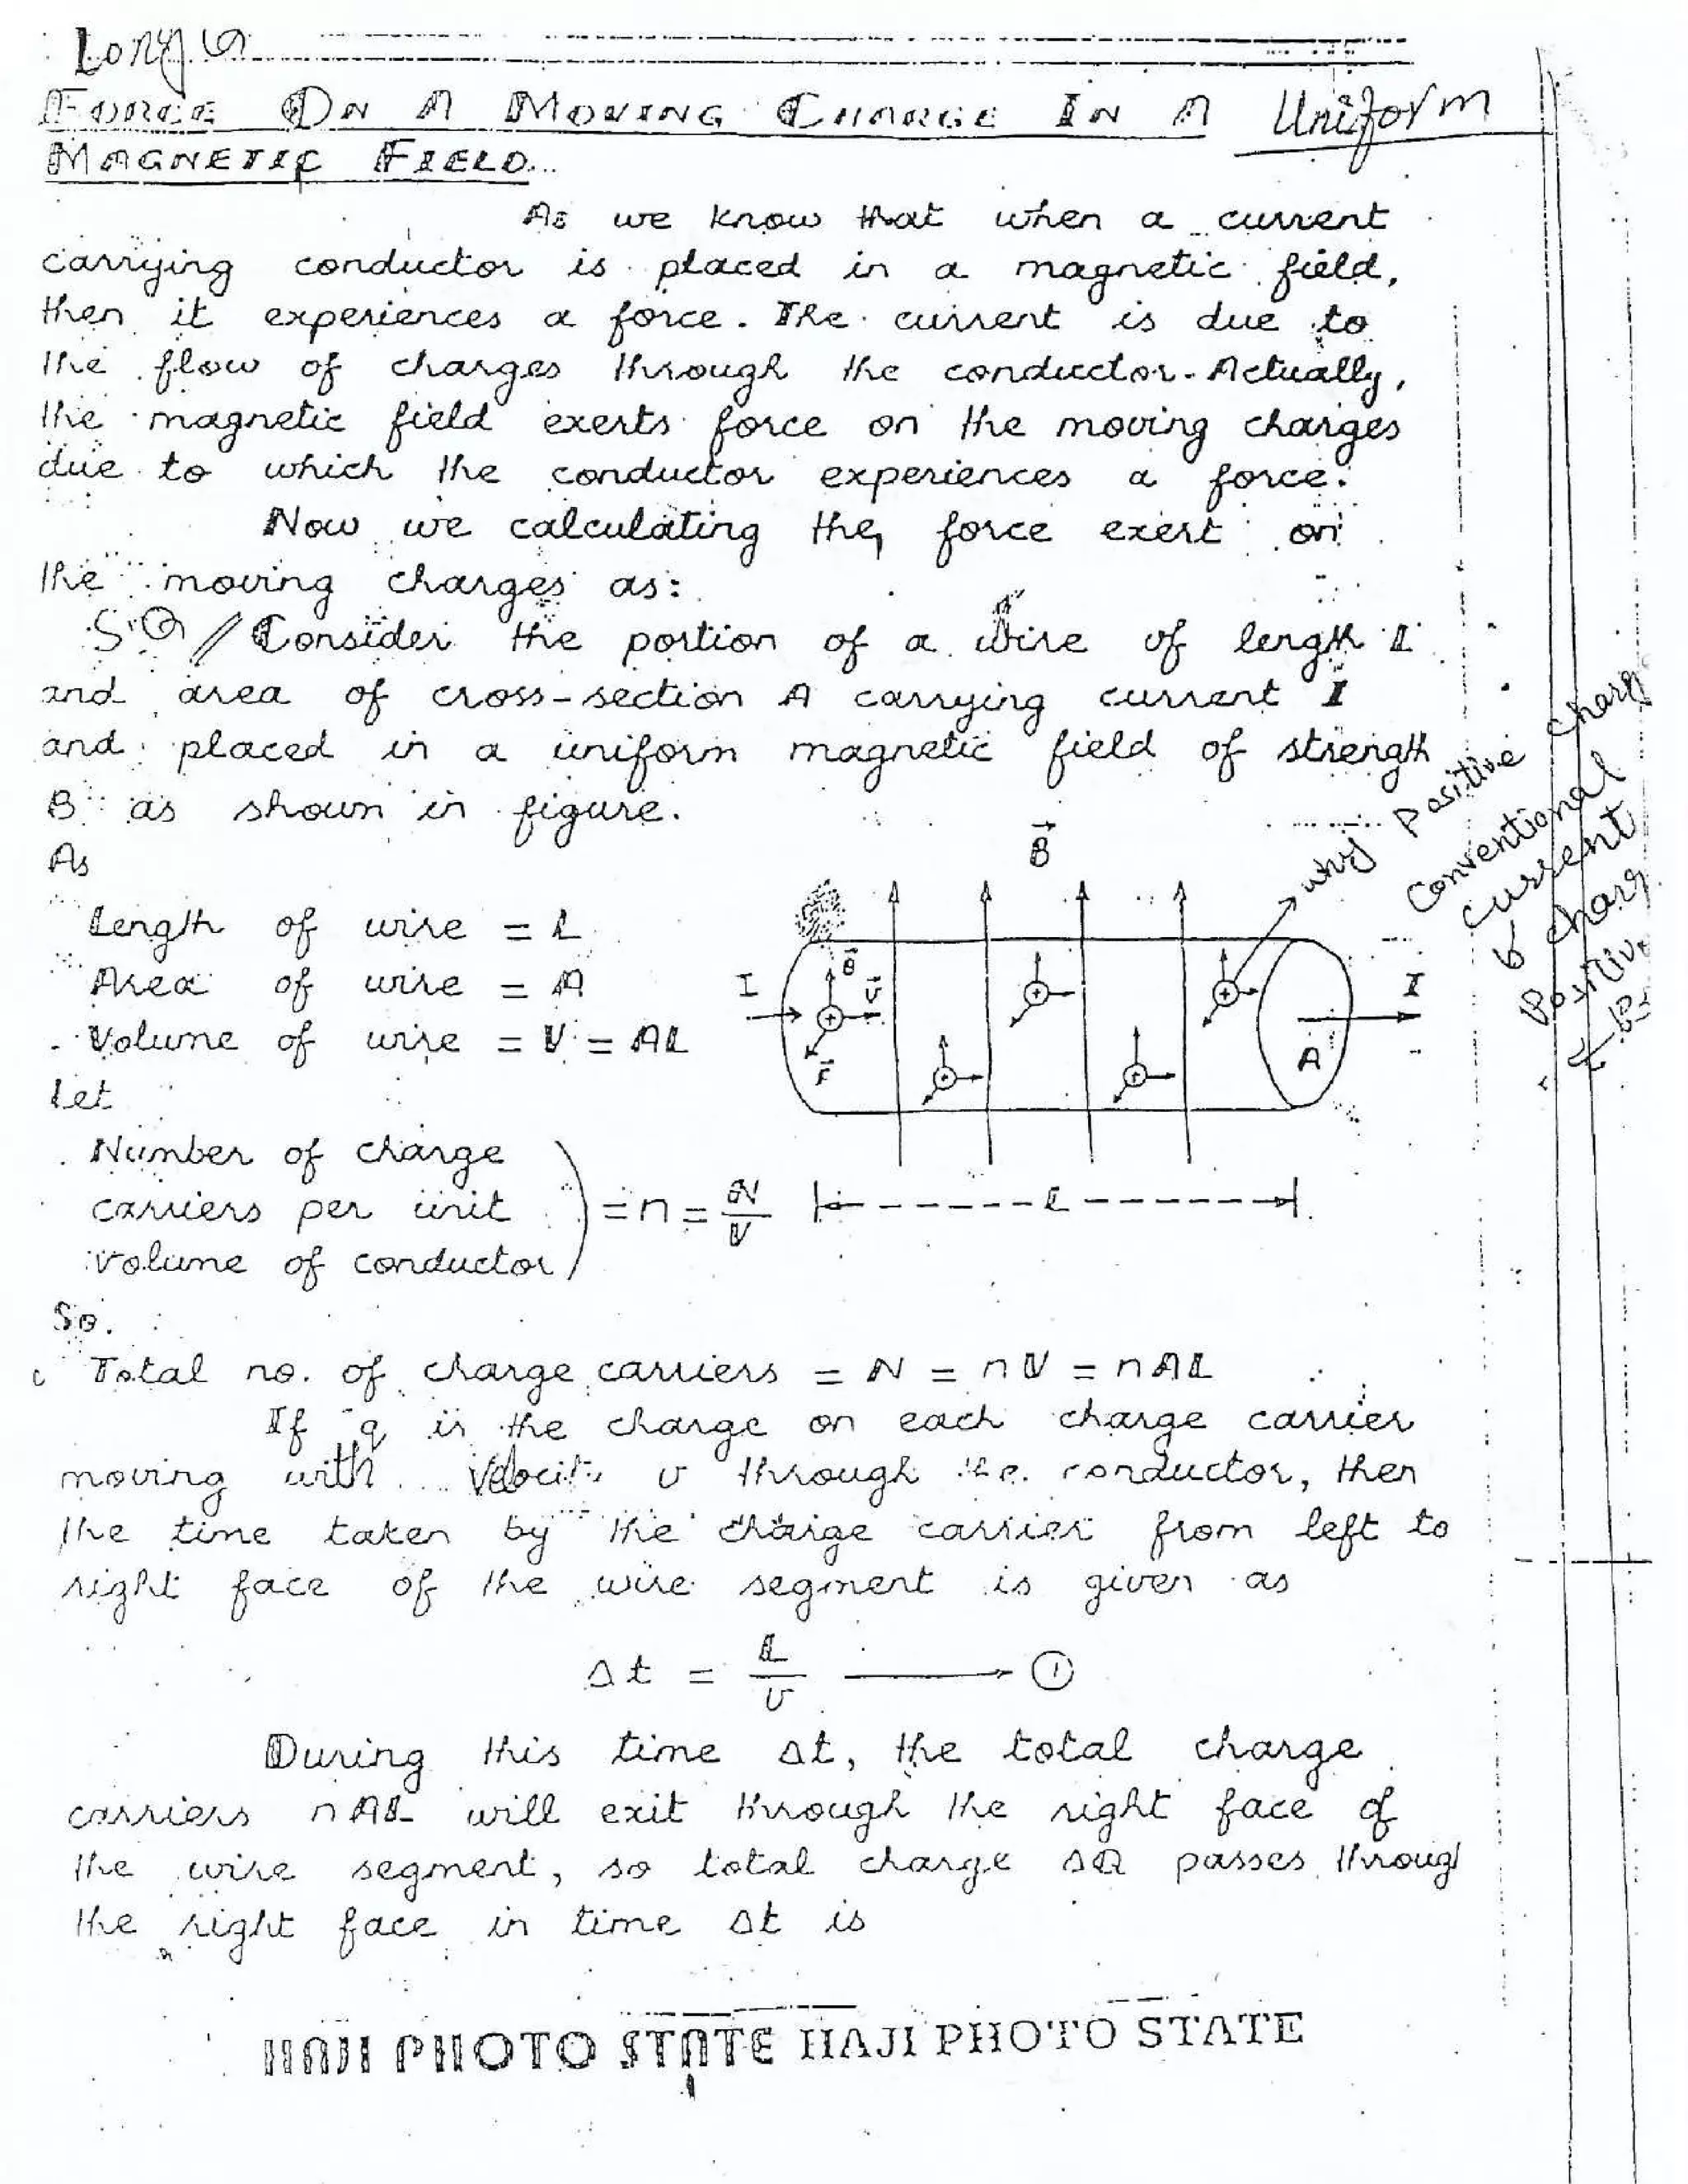 Long Q
FORCE ON A MOVING CHARGE IN A Uniform
MAGNETIC FIELD.
As we know that when a current
carrying conductor is placed in a magnetic field,
then it experiences a force. The current is due to
the flow of charges through the conductor. Actually,
the magnetic field exerts force on the moving charges
due to which the conductor experiences a force.
Now we calculating the force exert on
the moving charges as:
S.Q // Consider the portion of a wire of length L
and area of cross-section A carrying current I
and placed in a uniform magnetic field of strength
B as shown in figure.
As
Length of wire = L
Area of wire = A
Volume of wire = V = AL
Let
Number of charge
carriers per unit
volume of conductor) = n = N/V
B⃗
why Positive charg
Conventional
current
charg
Positiv
I
B⃗
v⃗
F⃗
A
I
L
So.
Total no. of charge carriers = N = nV = nAL
If q is the charge on each charge carrier
moving with v through the conductor, then
the time taken by the charge carrier from left to
right face of the wire segment is given as
Δt = L/v ⟶ ①
During this time Δt, the total charge
carriers nAL will exit through the right face of
the wire segment, so total charge ΔQ passes throug
the right face in time Δt is
HAJI PHOTO STATE HAJI PHOTO STATE